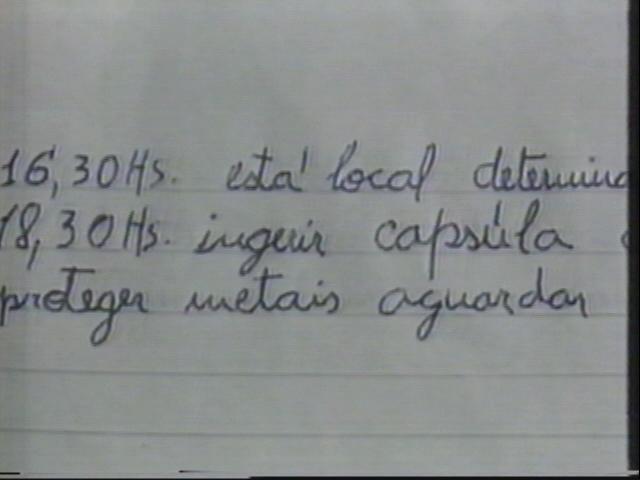 16,30Hs. está local determina
18,30Hs. ingerir capsúla
proteger metais aguardar